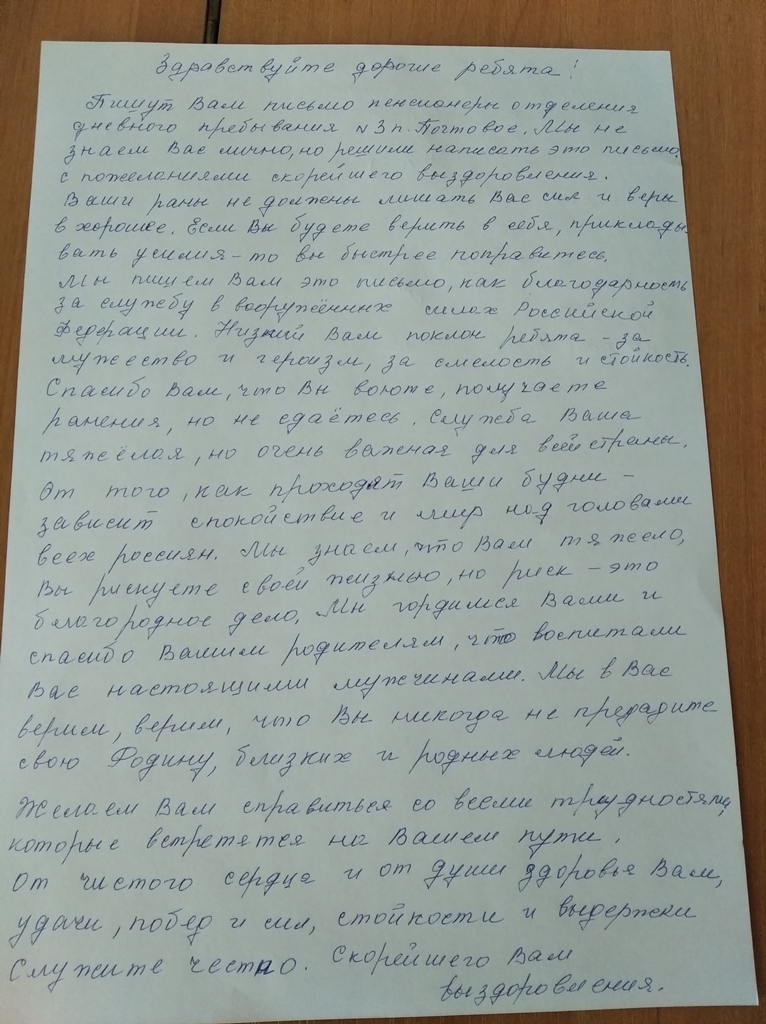 Здравствуйте дорогие ребята!
Пишут Вам письмо пенсионеры отделения
дневного пребывания №3 п. Почтовое. Мы не
знаем Вас лично, но решили написать это письмо
с пожеланиями скорейшего выздоровления.
Ваши раны не должны лишать Вас сил и веры
в хорошее. Если Вы будете верить в себя, приклады-
вать усилия - то вы быстрее поправитесь.
Мы пишем Вам это письмо, как благодарность
за службу в вооружённых силах Российской
Федерации. Низкий Вам поклон ребята - за
мужество и героизм, за смелость и стойкость.
Спасибо Вам, что Вы воюте, получаете
ранения, но не сдаётесь. Служба Ваша
тяжёлая, но очень важная для всей страны.
От того, как проходят Ваши будни -
зависит спокойствие и мир над головами
всех россиян. Мы знаем, что Вам тяжело,
Вы рискуете своей жизнью, но риск - это
благородное дело. Мы гордимся Вами и
спасибо Вашим родителям, что воспитали
Вас настоящими мужчинами. Мы в Вас
верим, верим, что Вы никогда не предадите
свою Родину, близких и родных людей.
Желаем Вам справиться со всеми трудностями,
которые встретятся на Вашем пути.
От чистого сердца и от души здоровья Вам,
удачи, побед и сил, стойкости и выдержки
Служите честно. Скорейшего Вам
выздоровления.